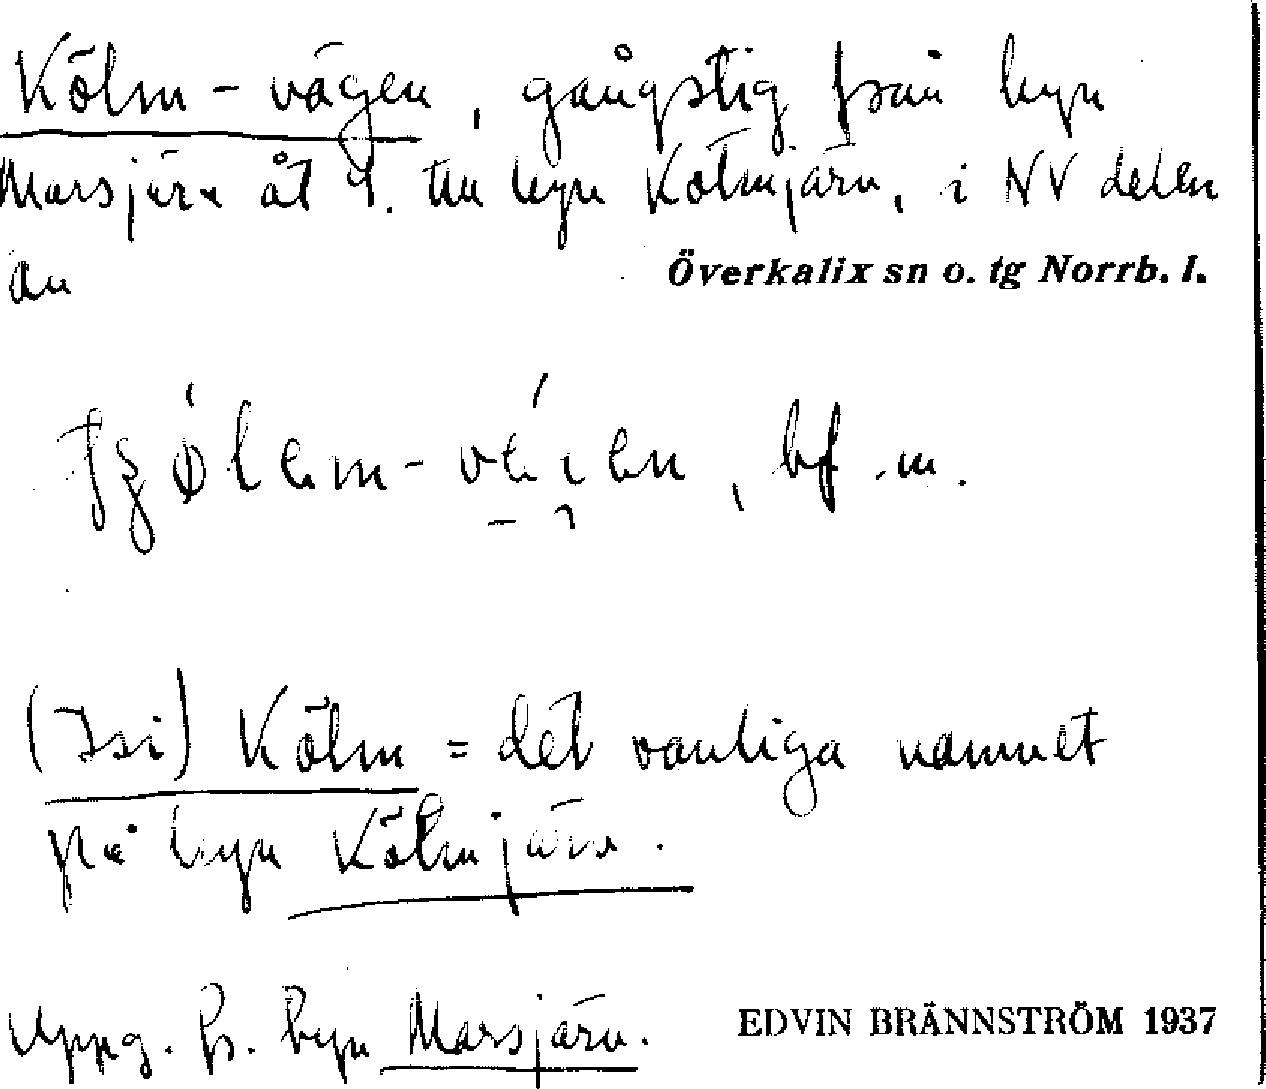 Kölm-vägen, gångstig från byn
Marsjärv åt S. till byn Kölmjärv, i NV delen
av Överkalix sn o. tg Norrb. l.
bf. m.
(Isi) Kölm = det vanliga namnet
på byn Kölmjärv.
Uppg. fr. byn Marsjärv. EDVIN BRÄNNSTRÖM 1937